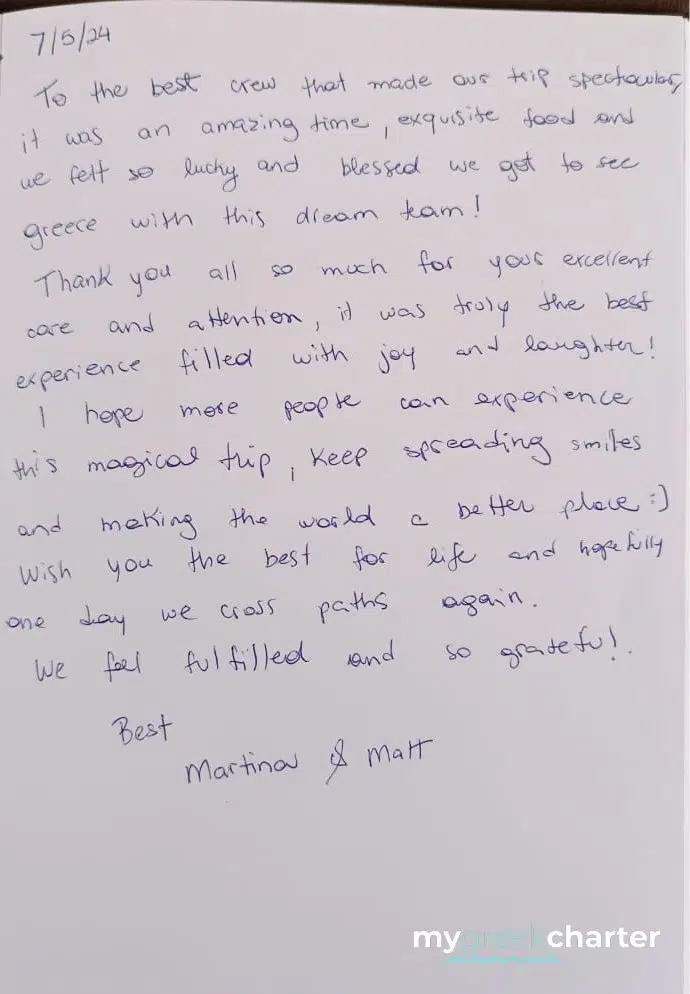 7/5/24
To the best crew that made our trip spectacular,
it was an amazing time, exquisite food and
we felt so lucky and blessed we got to see
greece with this dream team!
Thank you all so much for your excellent
care and attention, it was truly the best
experience filled with joy and laughter!
I hope more people can experience
this magical trip, keep spreading smiles
and making the world a better place :)
Wish you the best for life and hopefully
one day we cross paths again.
We feel fulfilled and so grateful.
Best
Martina & Matt
mygreekcharter